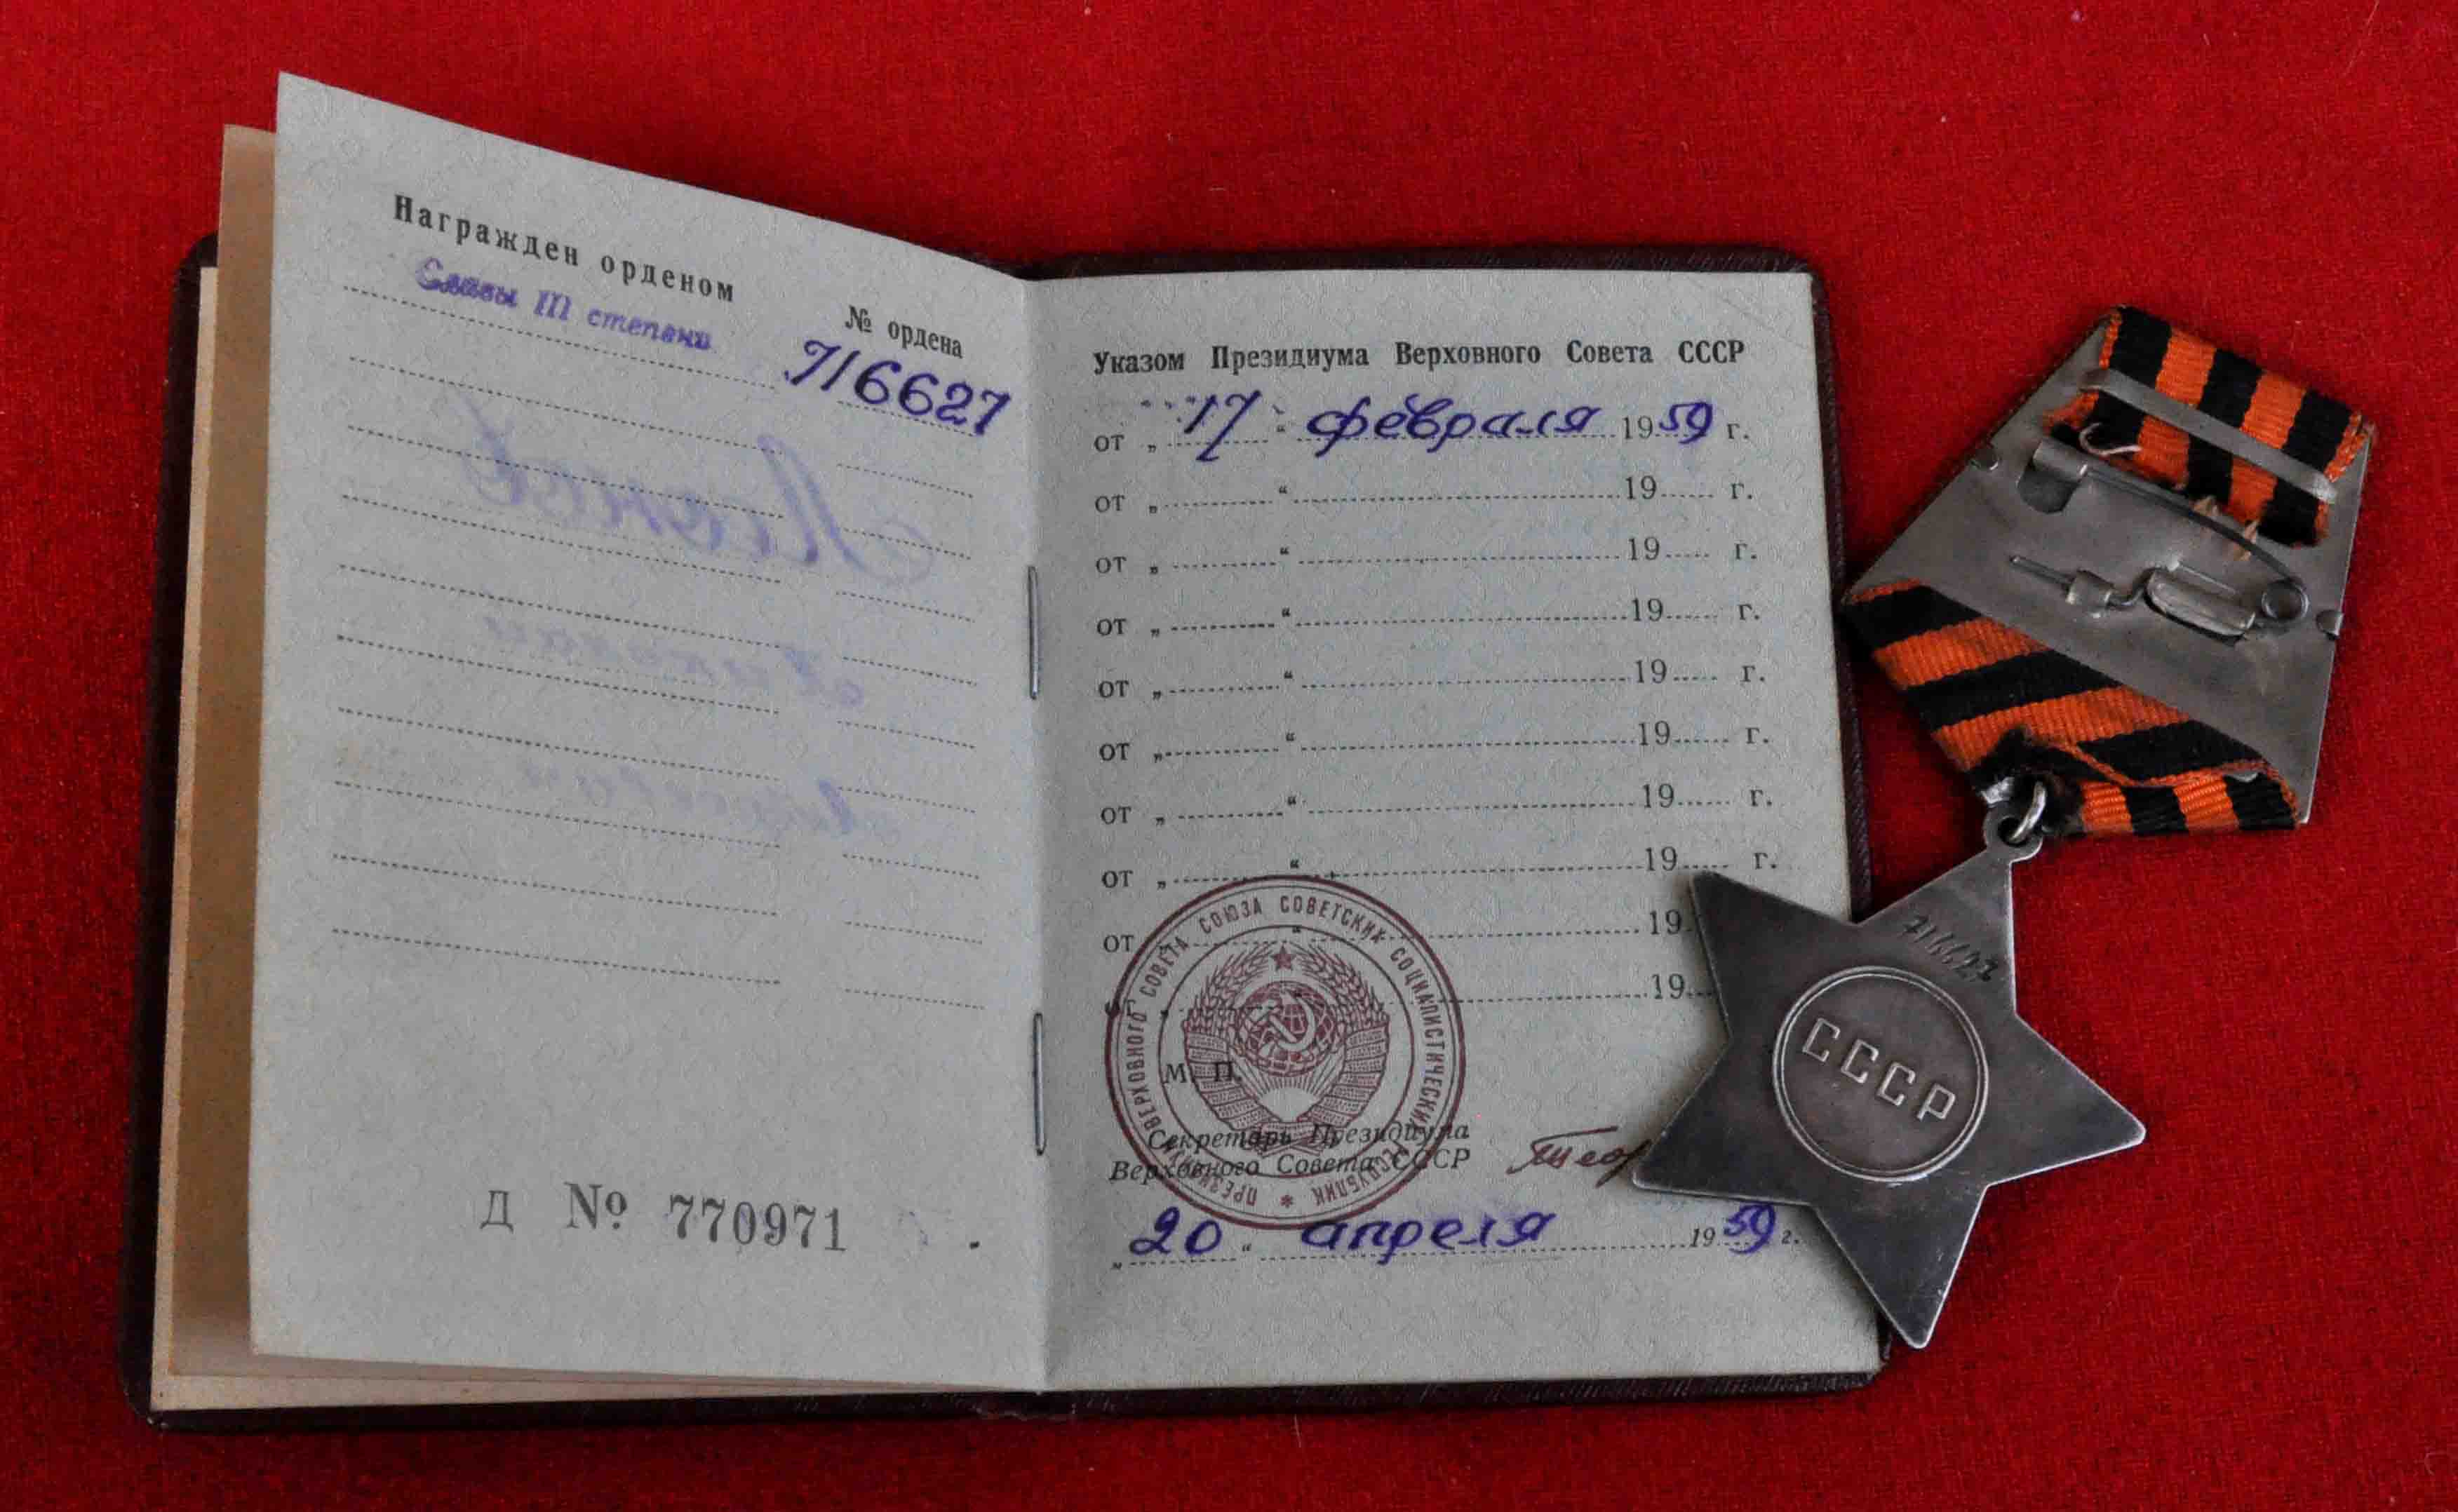 Награжден орденом
№ ордена
Славы III степени
716627
Д № 770971
Указом Президиума Верховного Совета СССР
от „ 17 “ февраля 1959 г.
от „ “ 19 г.
от „ “ 19 г.
от „ “ 19 г.
от „ “ 19 г.
от „ “ 19 г.
от „ “ 19 г.
от „ “ 19 г.
от „ “ 19
от „ “ 19
ПРЕЗИДИУМ ВЕРХОВНОГО СОВЕТА СОЮЗА СОВЕТСКИХ СОЦИАЛИСТИЧЕСКИХ РЕСПУБЛИК
М. П.
Секретарь Президиума
Верховного Совета СССР
„ 20 “ апреля 1959 г.
716627
СССР